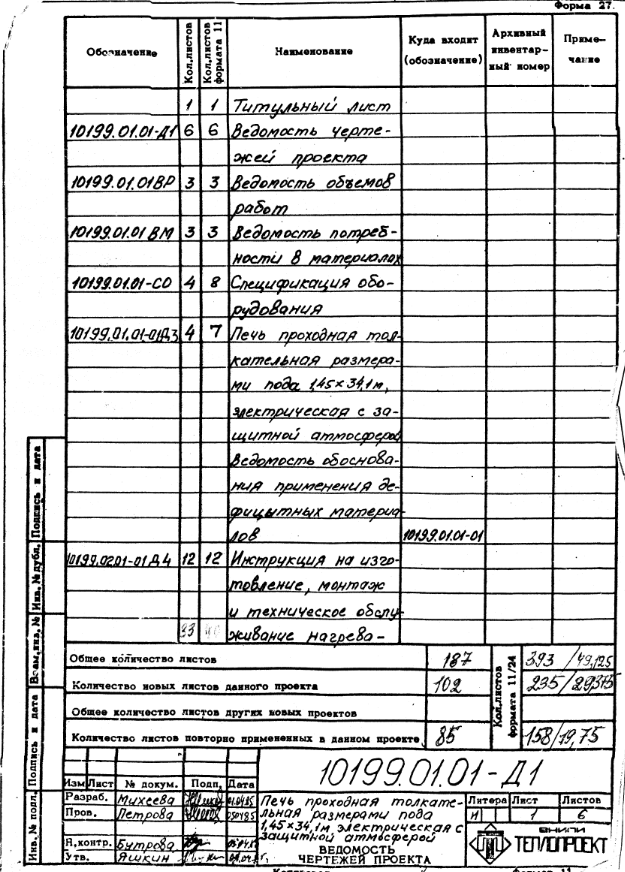 Форма 27.
Обозначение Кол.листов Кол.листов формата 11 Наименование Куда входит (обозначение) Архивный инвентарный номер Примечание
1 1 Титульный лист
10199.01.01-Д1 6 6 Ведомость черте-
жей проекта
10199.01.01ВР 3 3 Ведомость объемов
работ
10199.01.01ВМ 3 3 Ведомость потреб-
ности в материалах
10199.01.01-СО 4 8 Спецификация обо-
рудования
10199.01.01-01Д3 4 7 Печь проходная тол-
кательная размера-
ми пода 1,45×34,1м,
электрическая с за-
щитной атмосферой
Ведомость обоснова-
ния применения де-
фицытных материа-
лов 10199.01.01-01
10199.02.01-01Д4 12 12 Инструкция на изго-
товление, монтаж
и техническое обслу-
33 живание нагрева-
Общее количество листов 187 Кол.листов формата 11/24 393/49,125
Количество новых листов данного проекта 102 235/29,375
Общее количество листов других новых проектов
Количество листов повторно примененных в данном проекте 85 158/19,75
10199.01.01-Д1
Изм Лист № докум. Подп. Дата
Разраб. Михеева 01.04.85
Пров. Петрова 05.04.85
Н.контр. Бутрова
Утв. Яшкин
Печь проходная толкате-
льная размерами пода
1,45×34,1м, электрическая с
защитной атмосферой
ВЕДОМОСТЬ
ЧЕРТЕЖЕЙ ПРОЕКТА
Литера Лист Листов
И 1 6
ВНИПИ
ТЕПЛОПРОЕКТ
Инв.№ подл. Подпись и дата Взам.инв.№ Инв.№ дубл. Подпись и дата
Формат 11